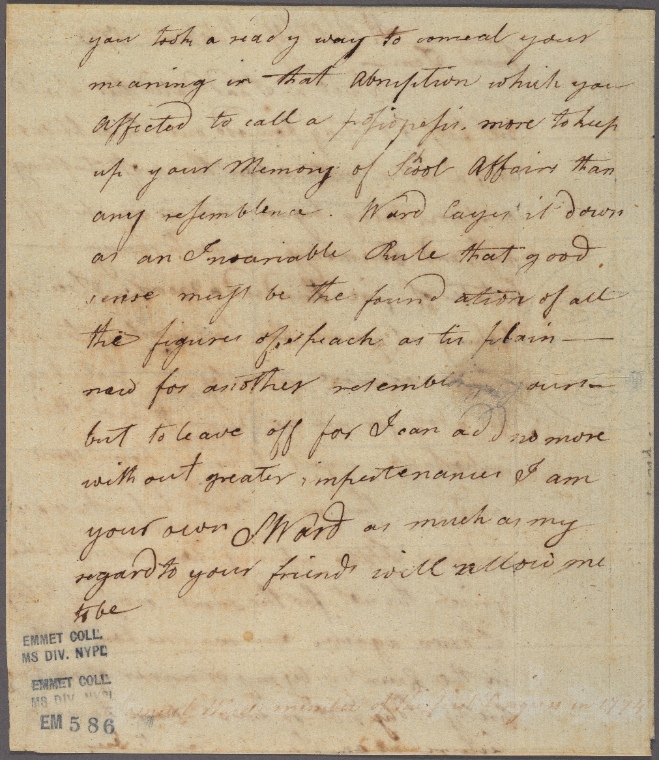 you took a ready way to conceal your
meaning in that Abruption which you
affected to call a posiopesis. more to keep
up your Memory of Scool Affairs than
any resemblence. Ward Layes it down
as an Invariable Rule that good
sense must be the foundation of all
the figures of speach as tis plain—
now for another resembling ours—
but to leave off for I can add no more
without greater impertenances I am
your own SWard as much as my
regard to your friends will allow me
to be
EMMET COLL.
MS DIV. NYPL
EMMET COLL.
MS DIV. NYPL
EM 586
member of the first Congress in 1774